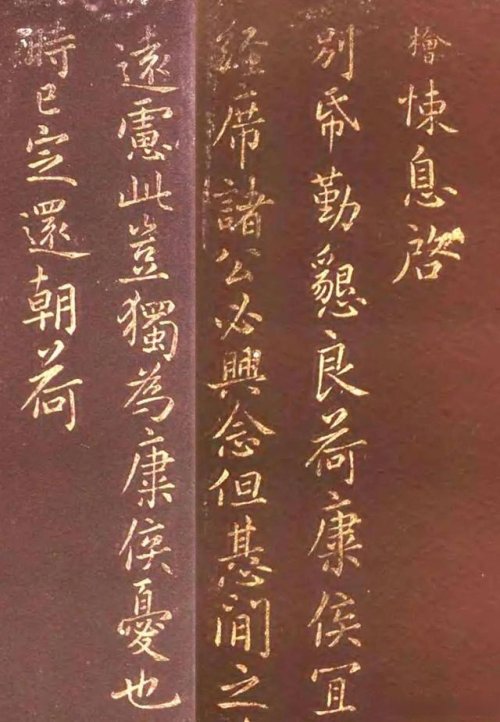 檜悚息啓
別帋勤懇良荷康侯冝
經席諸公必興念但惎間之
遠慮此豈獨為康侯憂也
時已定還朝荷